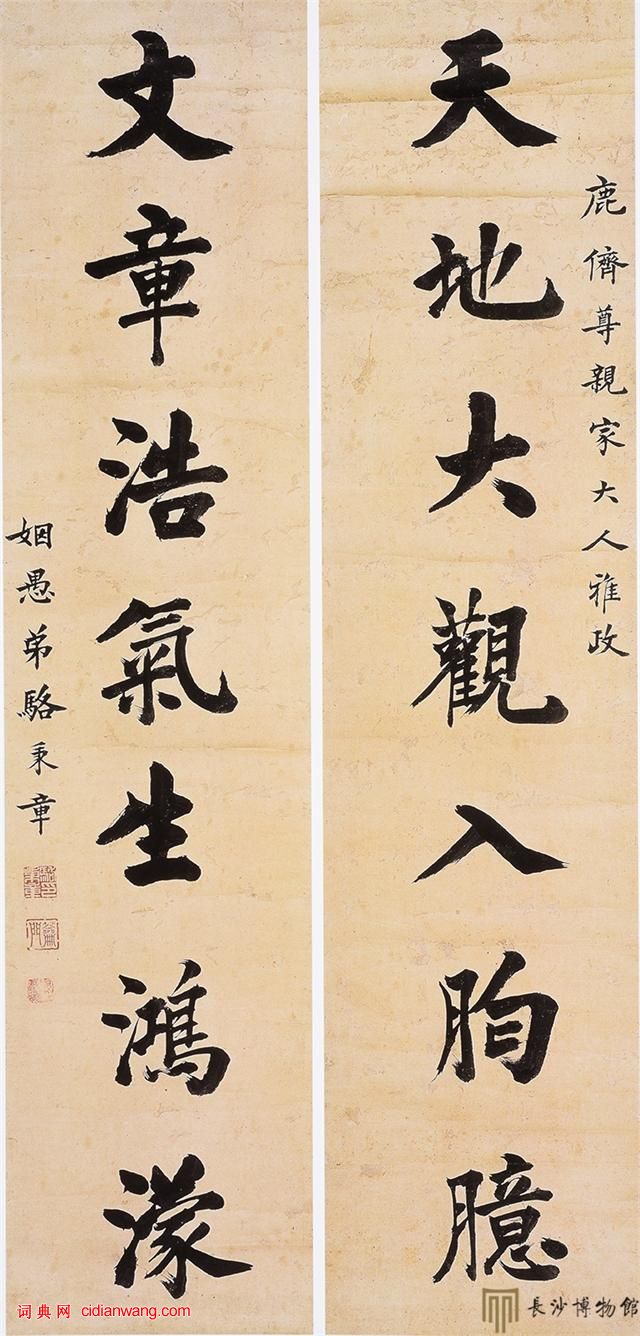 鹿儕尊親家大人雅政
天地大觀入胸臆
文章浩氣生鴻濛
姻愚弟駱秉章
詞典网 cidianwang.com
長沙博物館